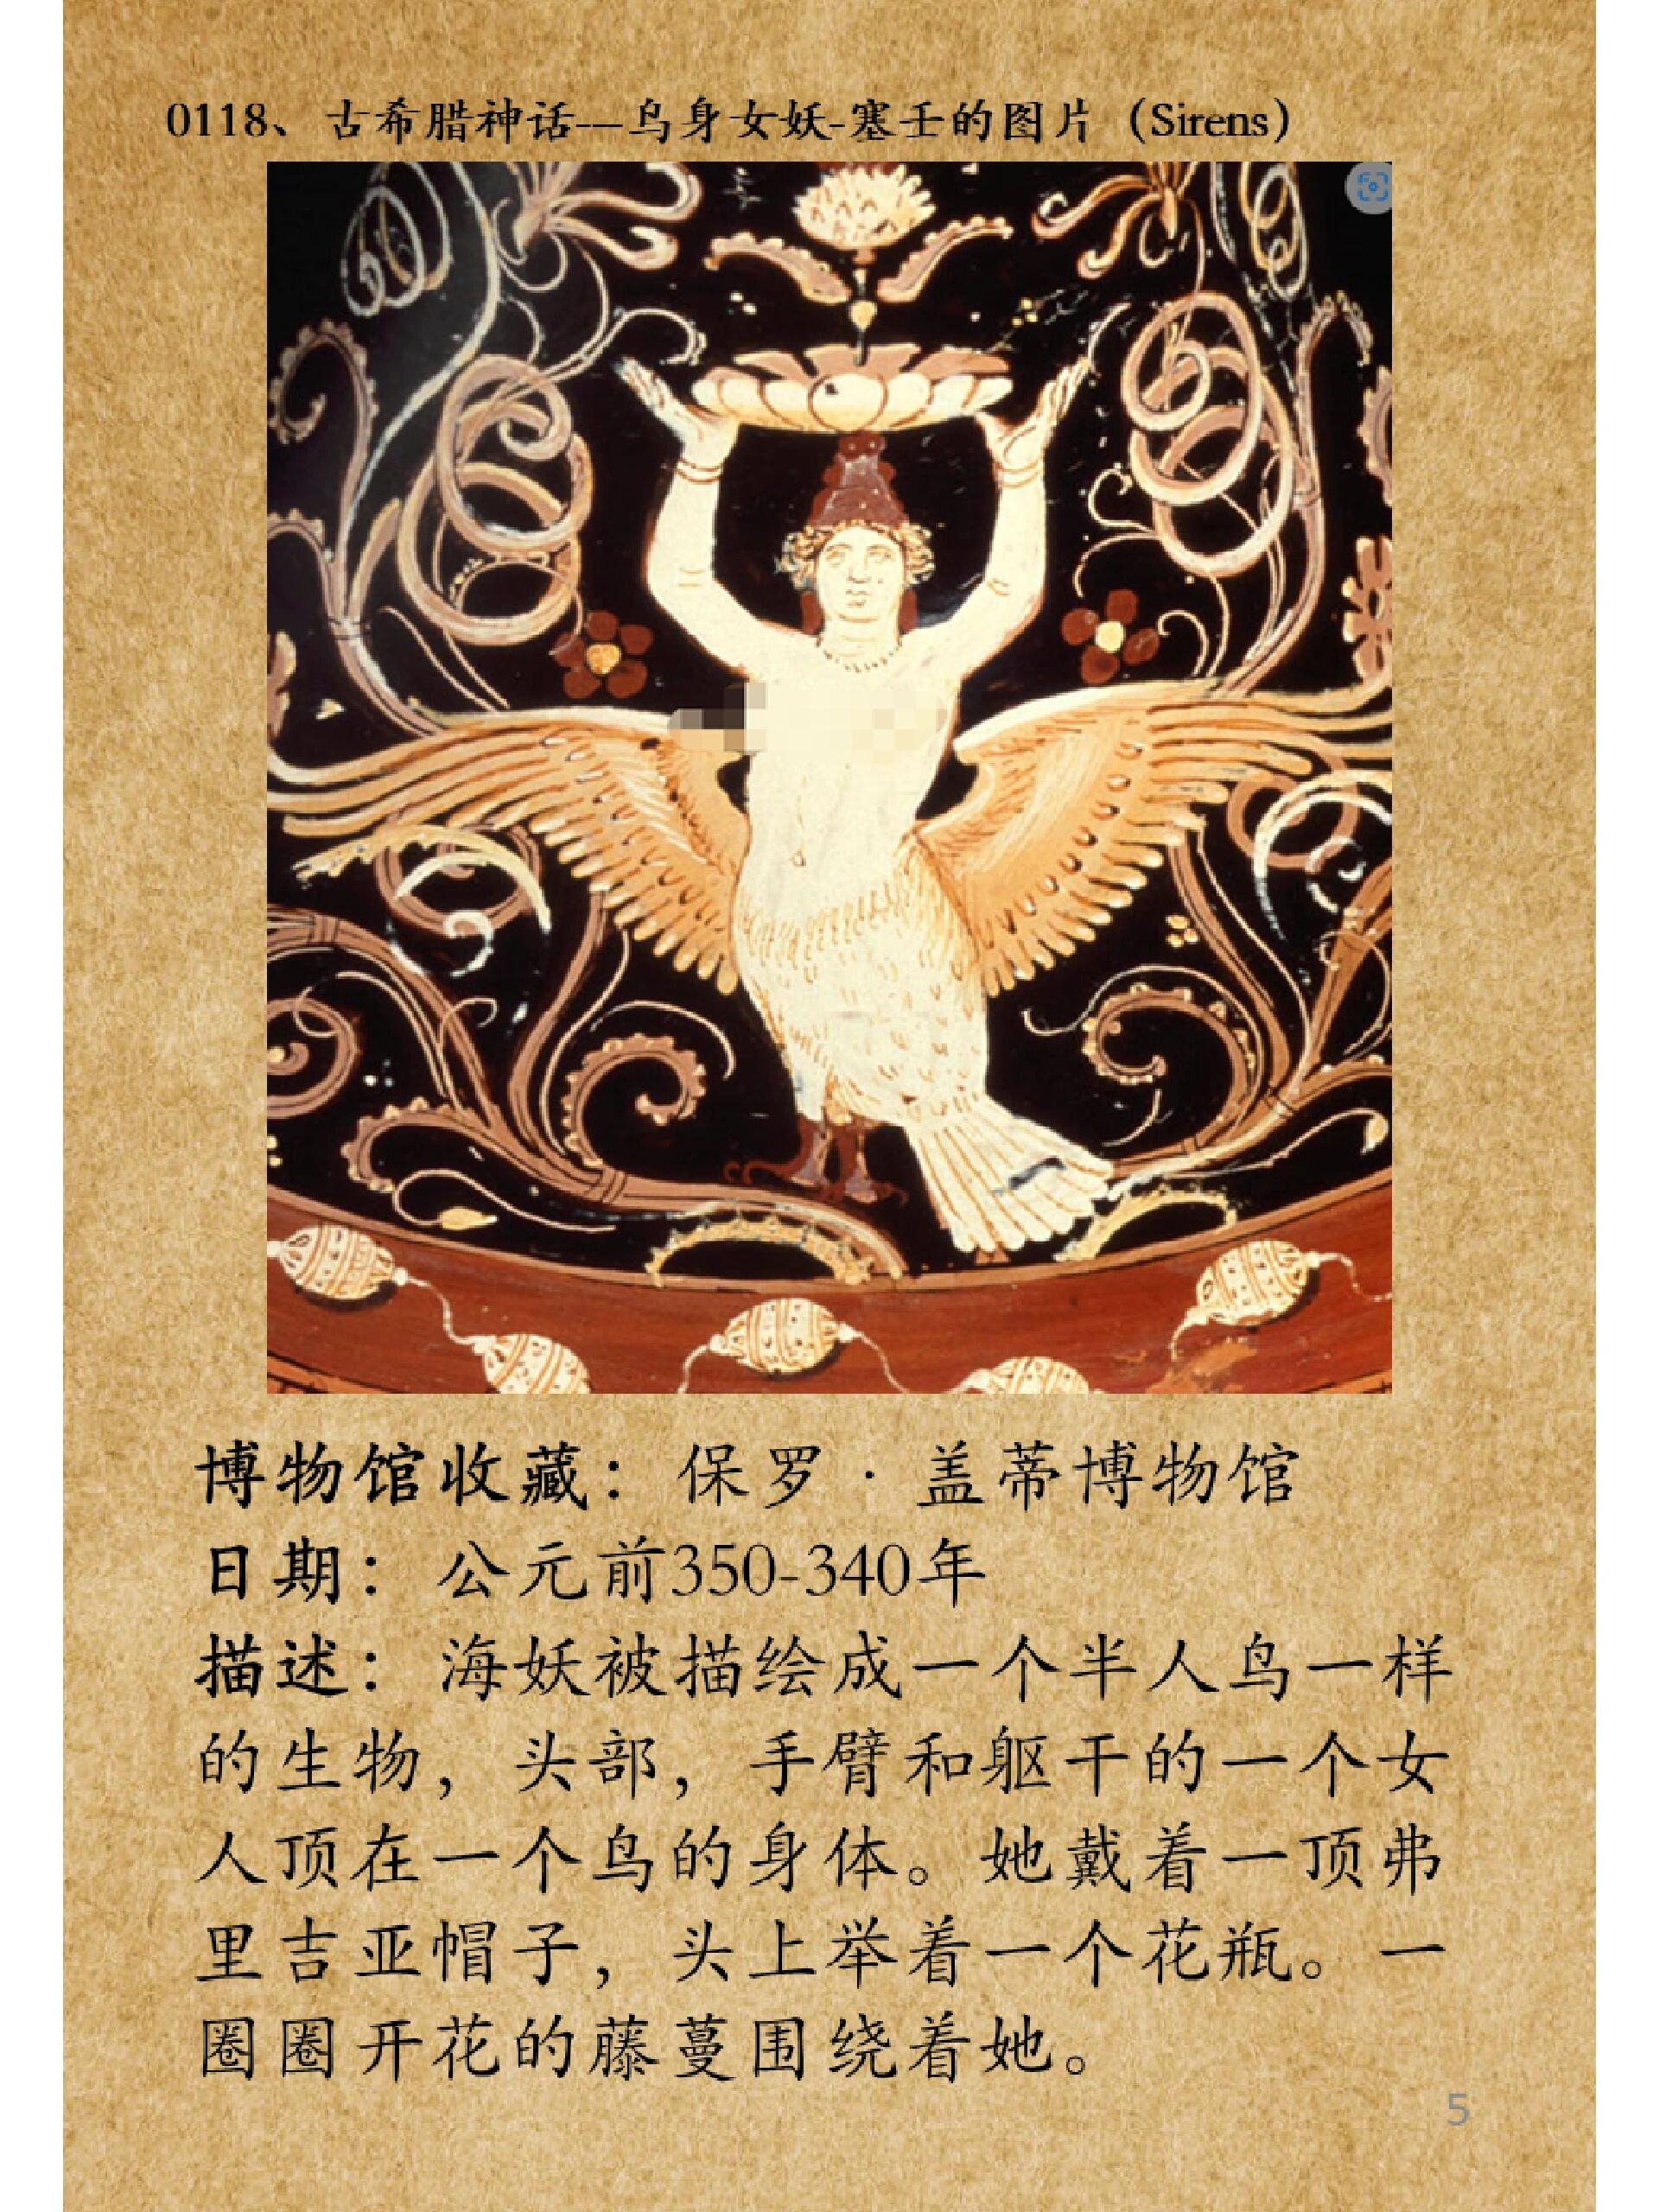 0118、古希腊神话---鸟身女妖-塞壬的图片（Sirens）
博物馆收藏：保罗·盖蒂博物馆
日期：公元前350-340年
描述：海妖被描绘成一个半人鸟一样
的生物，头部，手臂和躯干的一个女
人顶在一个鸟的身体。她戴着一顶弗
里吉亚帽子，头上举着一个花瓶。一
圈圈开花的藤蔓围绕着她。
5